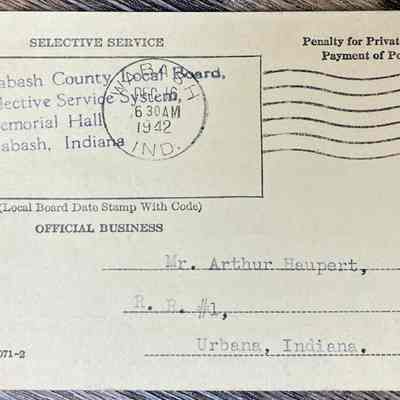 SELECTIVE SERVICE
Penalty for Privat
Payment of Po
abash County Local Board,
lective Service System,
emorial Hall
abash, Indiana
WABASH
DEC 16
6 30 AM
1942
IND.
(Local Board Date Stamp With Code)
OFFICIAL BUSINESS
Mr. Arthur Haupert,
R. R. #1,
Urbana, Indiana.
071-2